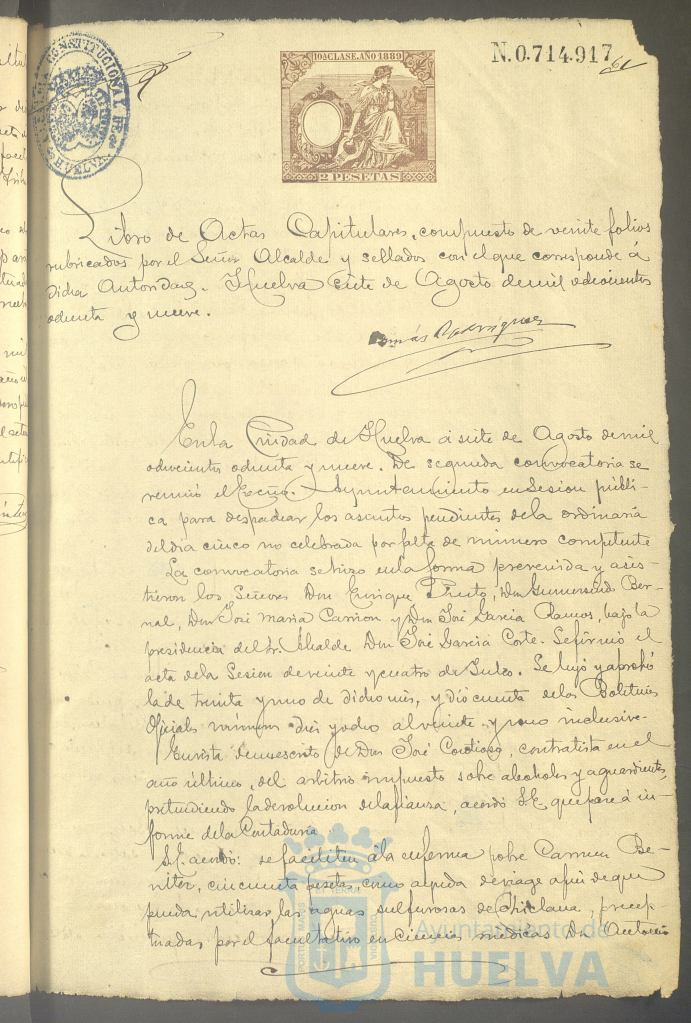 ALCALDIA CONSTITUCIONAL DE HUELVA
10ª CLASE. AÑO 1889
2 PESETAS
N.0.714.917
Libro de Actas Capitulares, compuesto de veinte folios
rubricados por el Señor Alcalde y sellados con el que corresponde á
dicha Autoridad. Huelva siete de Agosto de mil ochocientos
ochenta y nueve.
Tomás Rodriguez
En la Ciudad de Huelva á siete de Agosto de mil
ochocientos ochenta y nueve. De segunda convocatoria se
reunió el Excmo. Ayuntamiento en Sesion públi-
ca para despachar los asuntos pendientes de la ordinaria
del dia cinco no celebrada por falta de número competente
La convocatoria se hizo en la forma prevenida y asis-
tieron los Señores Don Enrique Prieto, Don Gumersindo Ber-
nal, Don José Maria Carrion y Don José Garcia Ramos, bajo la
presidencia del Sr. Alcalde Don José Garcia Corte. Se firmó el
acta de la Sesion de veinte y cuatro de Julio. Se leyó y aprobó
la de treinta y uno de dicho mes, y dió cuenta de los Boletines
Oficiales números diez y ocho al veinte y uno inclusive.
En vista de un escrito de Don José, contratista en el
año último, del arbitrio impuesto sobre alcoholes y aguardientes,
pretendiendo la devolucion de la fianza, acordó S.E. que pase á in-
forme de la Contaduria
S.E. acordó: se faciliten á la enferma pobre Carmen Be-
nitez, cincuenta pesetas, como ayuda de viage afin de que
pueda utilizar las aguas sulfurosas de Chiclana, precep-
tuadas por el facultativo en ciencias médicas Dn Antonio
Ayuntamiento de
HUELVA